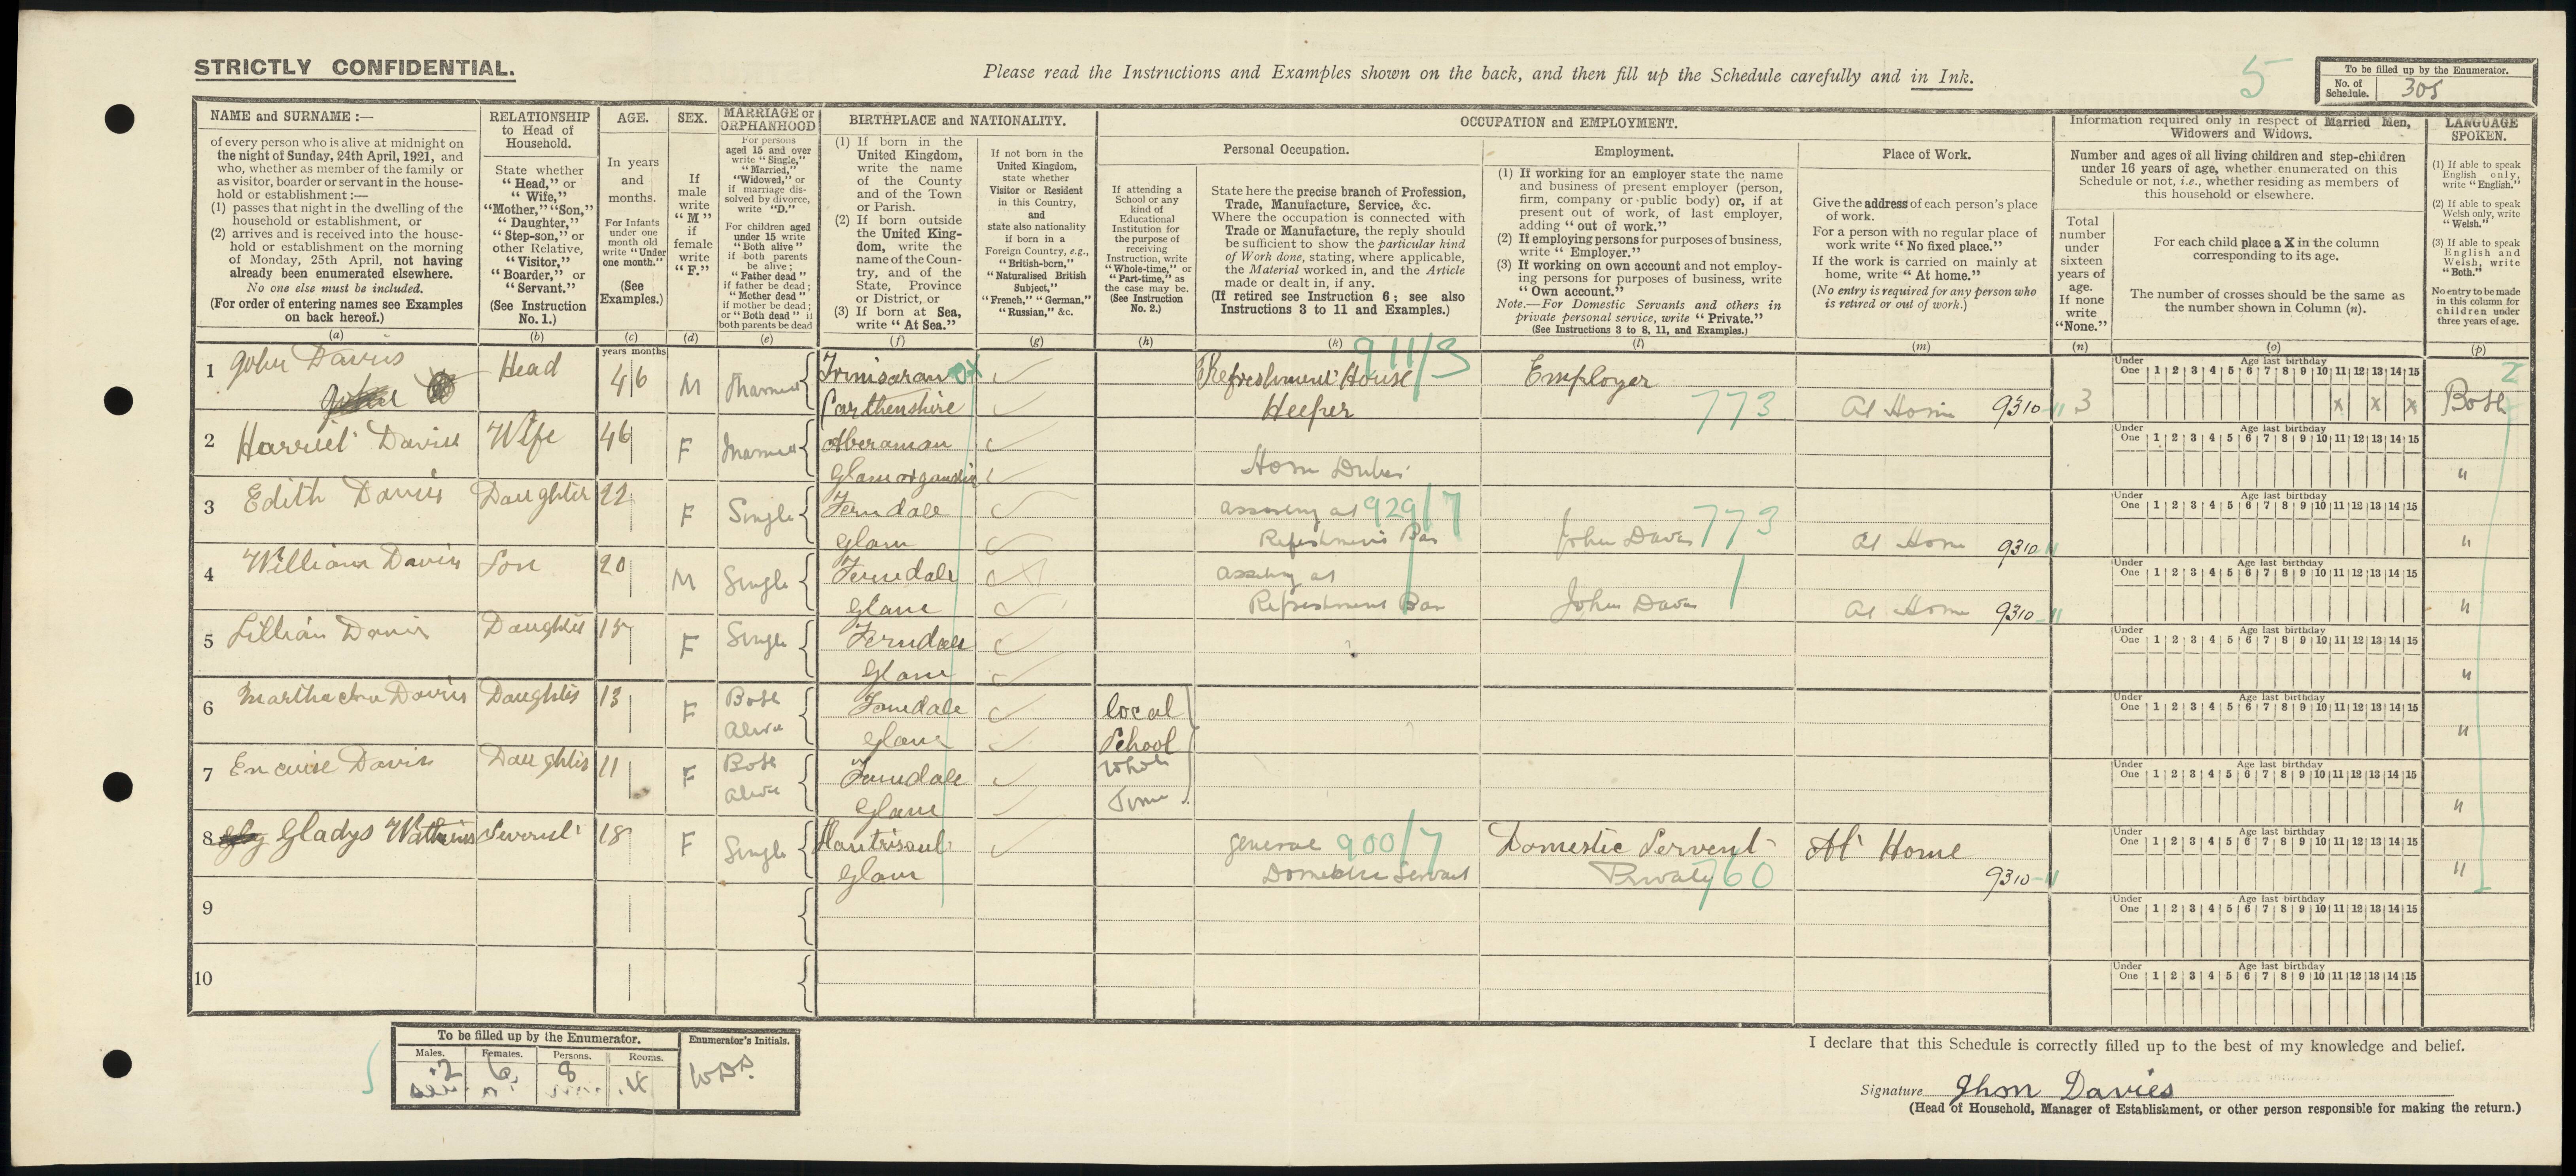 STRICTLY CONFIDENTIAL.
Please read the Instructions and Examples shown on the back, and then fill up the Schedule carefully and in Ink.
5
To be filled up by the Enumerator.
No. of Schedule. 305
NAME and SURNAME :—
of every person who is alive at midnight on
the night of Sunday, 24th April, 1921, and
who, whether as member of the family or
as visitor, boarder or servant in the house-
hold or establishment :—
(1) passes that night in the dwelling of the
household or establishment, or
(2) arrives and is received into the house-
hold or establishment on the morning
of Monday, 25th April, not having
already been enumerated elsewhere.
No one else must be included.
(For order of entering names see Examples
on back hereof.)
(a)
RELATIONSHIP
to Head of
Household.
State whether
"Head," or
"Wife,"
"Mother," "Son,"
"Daughter,"
"Step-son," or
other Relative,
"Visitor,"
"Boarder," or
"Servant."
(See Instruction
No. 1.)
(b)
AGE.
In years
and
months.
For Infants
under one
month old
write "Under
one month."
(See
Examples.)
(c)
SEX.
If
male
write
"M"
if
female
write
"F."
(d)
MARRIAGE or
ORPHANHOOD
For persons
aged 15 and over
write "Single,"
"Married,"
"Widowed," or
if marriage dis-
solved by divorce,
write "D."
For children aged
under 15 write
"Both alive"
if both parents
be alive;
"Father dead"
if father be dead;
"Mother dead"
if mother be dead;
or "Both dead" if
both parents be dead
(e)
BIRTHPLACE and NATIONALITY.
(1) If born in the
United Kingdom,
write the name
of the County
and of the Town
or Parish.
(2) If born outside
the United King-
dom, write the
name of the Coun-
try, and of the
State, Province
or District, or
(3) If born at Sea,
write "At Sea."
(f)
If not born in the
United Kingdom,
state whether
Visitor or Resident
in this Country,
and
state also nationality
if born in a
Foreign Country, e.g.,
"British-born,"
"Naturalised British
Subject,"
"French," "German,"
"Russian," &c.
(g)
OCCUPATION and EMPLOYMENT.
If attending a
School or any
kind of
Educational
Institution for
the purpose of
receiving
Instruction, write
"Whole-time," or
"Part-time," as
the case may be.
(See Instruction
No. 2.)
(h)
Personal Occupation.
State here the precise branch of Profession,
Trade, Manufacture, Service, &c.
Where the occupation is connected with
Trade or Manufacture, the reply should
be sufficient to show the particular kind
of Work done, stating, where applicable,
the Material worked in, and the Article
made or dealt in, if any.
(If retired see Instruction 6; see also
Instructions 3 to 11 and Examples.)
(k)
Employment.
(1) If working for an employer state the name
and business of present employer (person,
firm, company or public body) or, if at
present out of work, of last employer,
adding "out of work."
(2) If employing persons for purposes of business,
write "Employer."
(3) If working on own account and not employ-
ing persons for purposes of business, write
"Own account."
Note.—For Domestic Servants and others in
private personal service, write "Private."
(See Instructions 3 to 8, 11, and Examples.)
(l)
Place of Work.
Give the address of each person's place
of work.
For a person with no regular place of
work write "No fixed place."
If the work is carried on mainly at
home, write "At home."
(No entry is required for any person who
is retired or out of work.)
(m)
Information required only in respect of Married Men,
Widowers and Widows.
Number and ages of all living children and step-children
under 16 years of age, whether enumerated on this
Schedule or not, i.e., whether residing as members of
this household or elsewhere.
Total
number
under
sixteen
years of
age.
If none
write
"None."
(n)
For each child place a X in the column
corresponding to its age.
The number of crosses should be the same as
the number shown in Column (n).
(o)
LANGUAGE
SPOKEN.
(1) If able to speak
English only,
write "English."
(2) If able to speak
Welsh only, write
"Welsh."
(3) If able to speak
English and
Welsh, write
"Both."
No entry to be made
in this column for
children under
three years of age.
(p)
years months
Under One Age last birthday 1 2 3 4 5 6 7 8 9 10 11 12 13 14 15
1 John Davies Head 46 M Married Refreshment House 911/3 Employer
Carthenshire Keeper 773 At Home 9310 3 x x x Both
Under One Age last birthday 1 2 3 4 5 6 7 8 9 10 11 12 13 14 15
2 Harriet Davies Wife 46 F Married Aberaman
Glamorganshire Home Duties "
Under One Age last birthday 1 2 3 4 5 6 7 8 9 10 11 12 13 14 15
3 Edith Davies Daughter 22 F Single Ferndale assisting at 929/7
Glam Refreshment Bar John Davies 773 At Home 9310 "
Under One Age last birthday 1 2 3 4 5 6 7 8 9 10 11 12 13 14 15
4 William Davies Son 20 M Single Ferndale assisting at
Glam Refreshment Bar John Davies At Home 9310 "
Under One Age last birthday 1 2 3 4 5 6 7 8 9 10 11 12 13 14 15
5 Lillian Davies Daughter 15 F Single Ferndale
Glam "
Under One Age last birthday 1 2 3 4 5 6 7 8 9 10 11 12 13 14 15
6 Martha Ann Davies Daughter 13 F Both Alive Ferndale local
Glam School "
Under One Age last birthday 1 2 3 4 5 6 7 8 9 10 11 12 13 14 15
7 Davies Daughter 11 F Both Alive Ferndale Whole
Glam Time "
Under One Age last birthday 1 2 3 4 5 6 7 8 9 10 11 12 13 14 15
8 Gladys Watkins Servent 18 F Single Llantrisant general 900/7 Domestic Servent At Home
Glam Domestic Servant Private 760 9310 "
Under One Age last birthday 1 2 3 4 5 6 7 8 9 10 11 12 13 14 15
9
Under One Age last birthday 1 2 3 4 5 6 7 8 9 10 11 12 13 14 15
10
To be filled up by the Enumerator.
Males. Females. Persons. Rooms.
2 6 8 4
Enumerator's Initials.
I declare that this Schedule is correctly filled up to the best of my knowledge and belief.
Signature Jhon Davies
(Head of Household, Manager of Establishment, or other person responsible for making the return.)